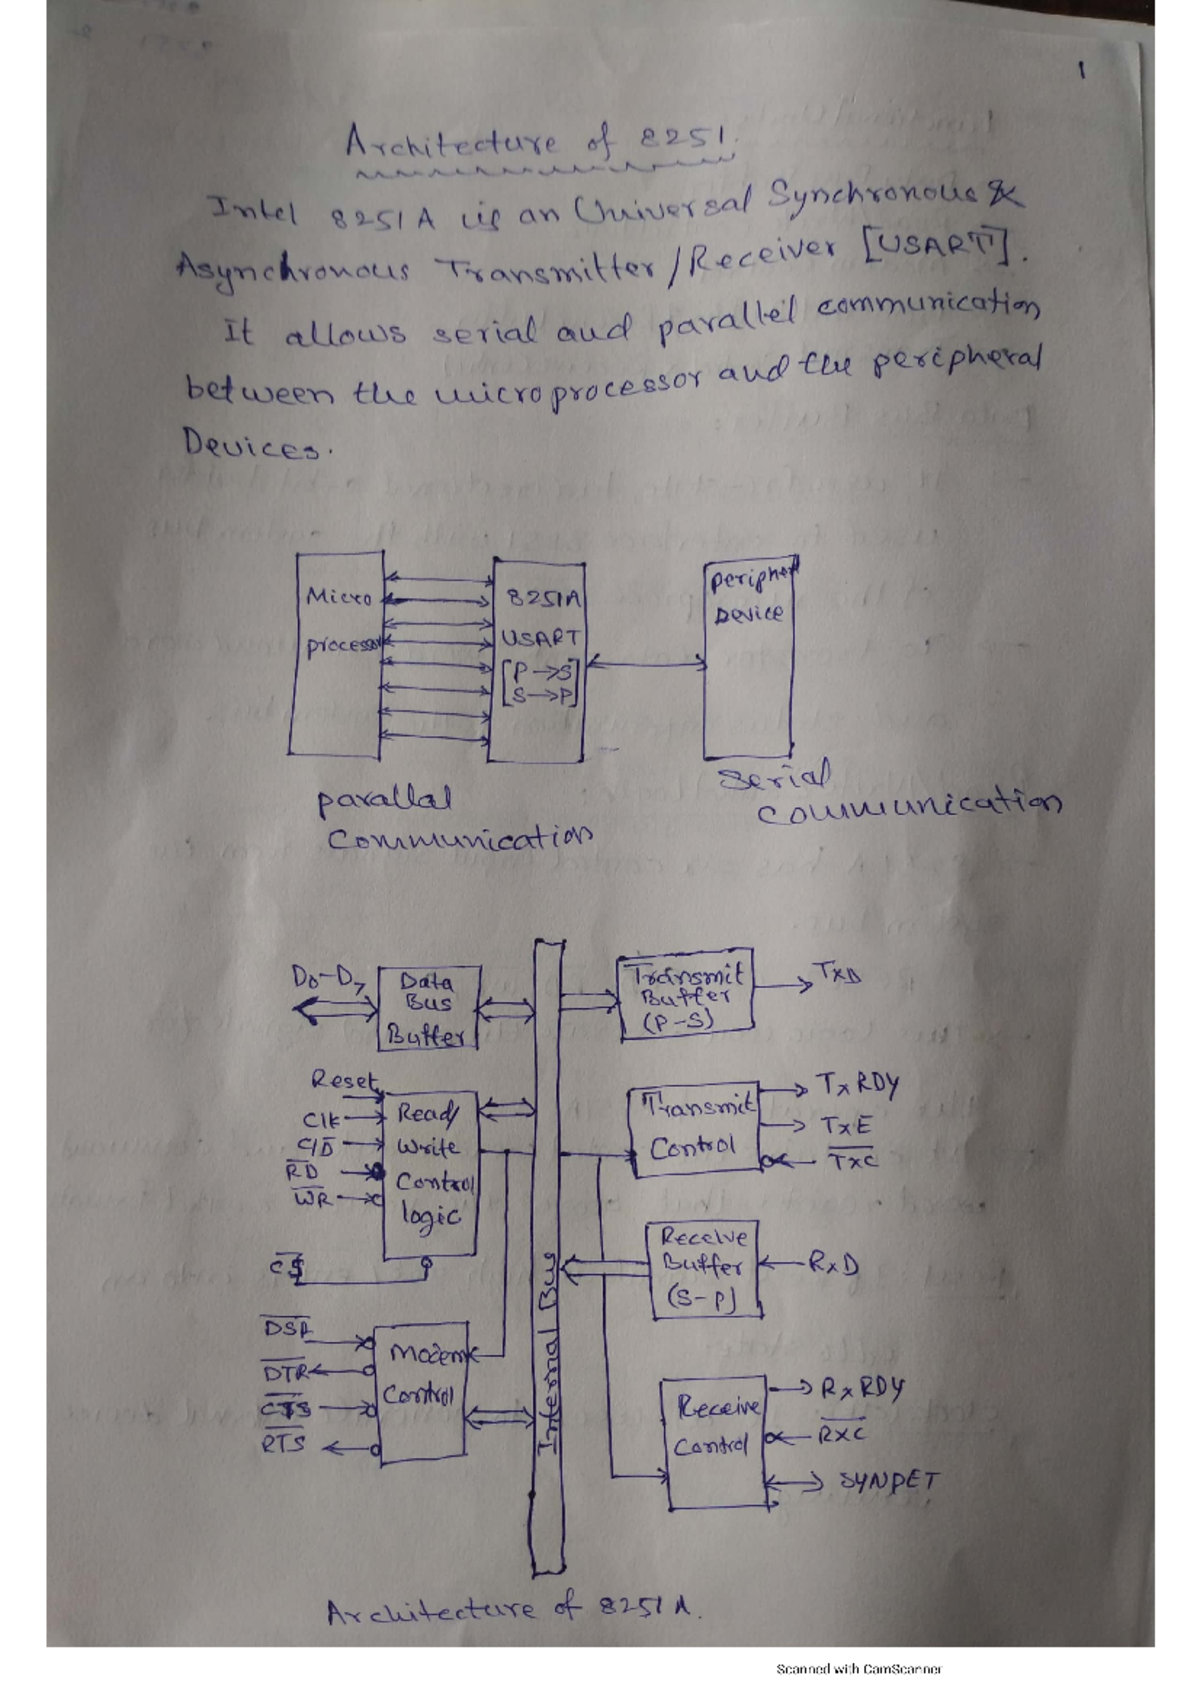 1
Architecture of 8251.
Intel 8251A is an Universal Synchronous &
Asynchronous Transmitter/Receiver [USART].
It allows serial and parallel communication
between the microprocessor and the peripheral
Devices.
Micro
processor
8251A
USART
[P→S]
[S→P]
peripheral
Device
parallal
Communication
Serial
Communication
D0-D7
Data
Bus
Buffer
Transmit
Buffer
(P-S)
TxD
Reset
Clk
C/D̅
R̅D̅
W̅R̅
C̅S̅
Read/
Write
Control
logic
Transmit
Control
TxRDY
TxE
T̅x̅C̅
Receive
Buffer
(S-P)
RxD
D̅S̅R̅
D̅T̅R̅
C̅T̅S̅
R̅T̅S̅
Modem
Control
Internal Bus
Receive
Control
RxRDY
R̅x̅C̅
SYNDET
Architecture of 8251A.
Scanned with CamScanner